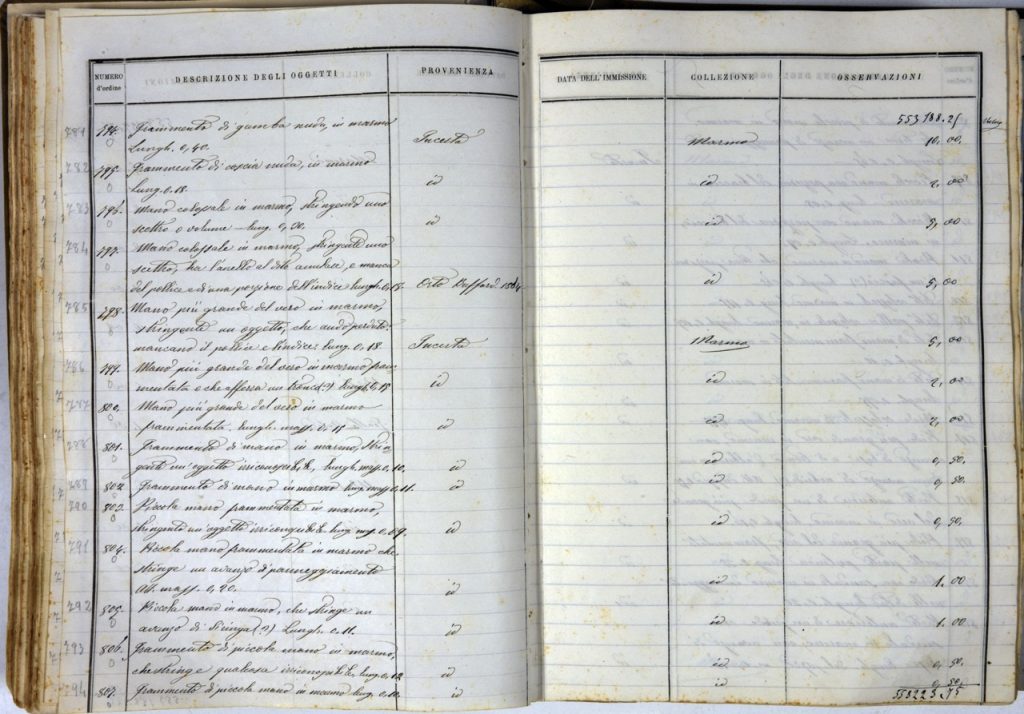 NUMERO d'ordine DESCRIZIONE DEGLI OGGETTI PROVENIENZA DATA DELL'IMMISSIONE COLLEZIONE OSSERVAZIONI
553188.25
781 794. Frammento di gamba nuda, in marmo
Lungh. 0,40. Incerta Marmo 10,00.
782 795. Frammento di coscia nuda, in marmo
Lung. 0.18. id id 2,00
783 796. Mano colossale in marmo, stringendo uno
scettro o volume - lung. 0,30. id id 5,00
784 797. Mano colossale in marmo, stringente uno
scettro, ha l'anello al dito anulare, e manca
del pollice e di una porzione dell'indice lungh. 0,18. Orto id 5,00
785 798. Mano più grande del vero in marmo,
stringente un oggetto, che andò perduto
mancano il pollice e l'indice: lung. 0.18 Incerta Marmo 5,00
786 799. Mano più grande del vero in marmo fram
mentata e che afferra un tronco(?) lungh. 0,15 id id 2,00
787 800. Mano più grande del vero in marmo
frammentata. lungh. mass. 0.15 id id 2,00
788 801. Frammento di mano in marmo, strin
gente un'oggetto irriconoscibile, lungh. mass. 0.10. id id 0,50.
789 802. Frammento di mano in marmo lung. mass. 0.11. id id 0,50.
790 803. Piccola mano frammentata in marmo,
stringente un'oggetto irriconoscibile lung. mass. 0.09. id id 0,50.
791 804. Piccola mano frammentata in marmo che
stringe un avanzo di panneggiamento
Alt. mass. 0,20. id id 1.00
792 805. Piccola mano in marmo, che stringe un
avanzo di siringa (?) Lungh. 0.11. id id 1.00
793 806. Frammento di piccola mano in marmo,
che stringe qualcosa irriconoscibile, lung. 0.12 id id 0,50.
794 807. Frammento di piccola mano in marmo lung. 0.10. id id 0,50.
553223.75